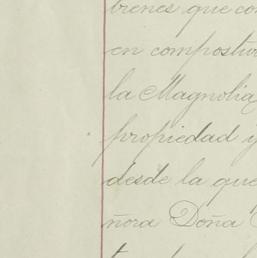 bienes que co
en compostu
la Magnolia
propiedad y
desde la que
ñora Doña